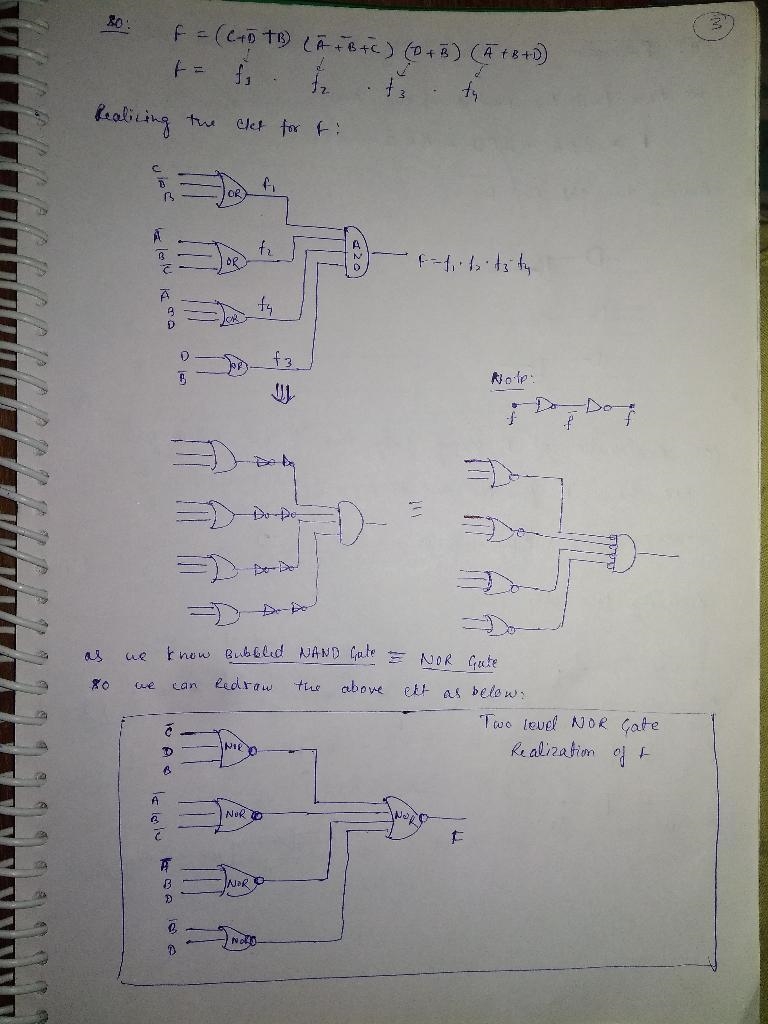 3
so:
F = (C+D̅+B) (A̅+B̅+C̅) (D+B̅) (A̅+B+D)
F = f1 . f2 . f3 . f4
Realizing the ckt for f:
C
D̅
B
OR
f1
A̅
B̅
C̅
OR
f2
A̅
B
D
OR
f4
D
B̅
OR
f3
AND
F = f1 . f2 . f3 . f4
Note:
f f̅ f
≡
as we know Bubbled NAND Gate ≡ NOR Gate
so we can Redraw the above ckt as below:
Two level NOR Gate
Realization of F
C̅
D
B
NOR
A̅
B̅
C̅
NOR
A̅
B
D
NOR
B̅
D
NOR
NOR
F